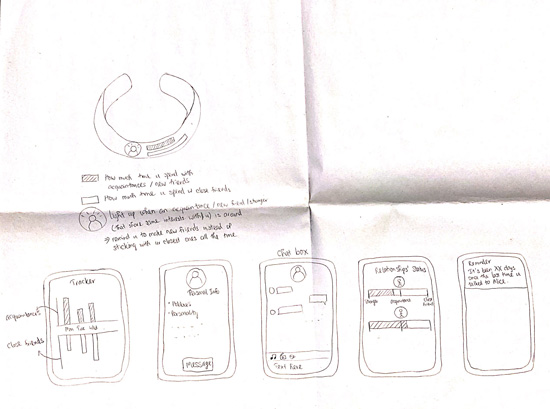 How much time is spend with
acquaintances / new friends
How much time is spend w close friends
Light up when an acquaintance / new friend / stranger
(that share same interests with u) is around
⇒ remind u to make new friends instead of
sticking with ur closest ones all the time.
Tracker
acquaintances
Mon Tue Wed
close friends
Personal Info
• Hobbies
• Personality
Message
Chat box
Text Here
Relationships' Status
Stranger
Acquaintance
Close Friends
Reminder
It's been XX days
since the last time u
talked to Alice.